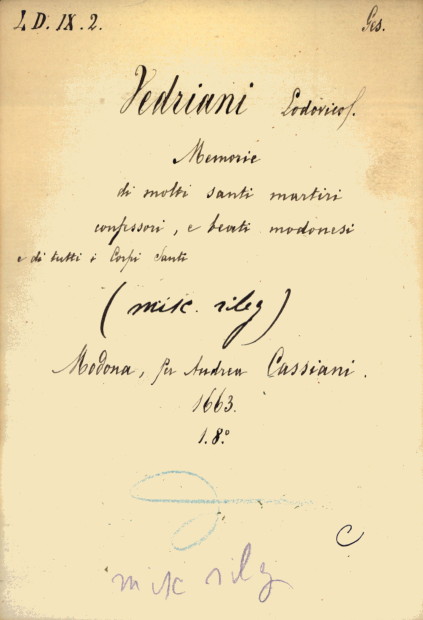 L D. IX. 2. Ges.
Vedriani Lodovico
Memorie
di molti santi martiri
confessori, e beati modonesi
e di tutti i Corpi Santi
(misc. rileg)
Modona, per Andrea Cassiani.
1663.
1.8º
C
misc rileg